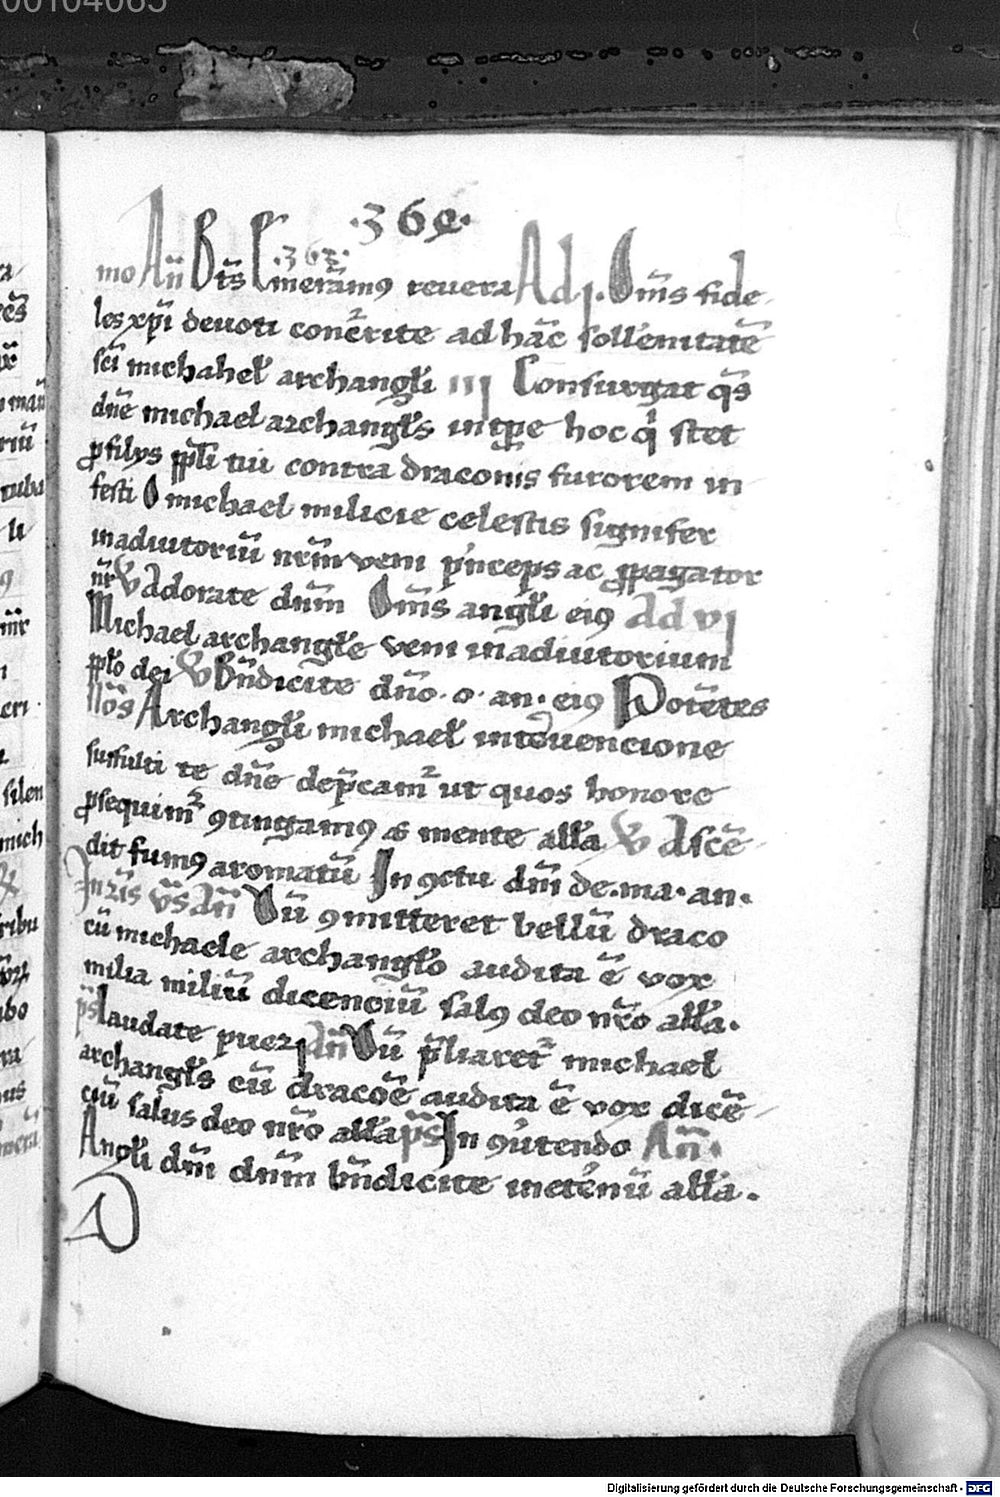 00104065
.369.
.363.
mo Añ Bñs Cineramus revera Ad j. Om̄s fide
les xp̄i devoti conc̄rite ad hāc sollēnitatē
sc̄i michahel̄ archangl̄i iij Consurgat qs̄
dn̄e michael archangl̄s in tp̄e hoc q̇ stet
ꝓ filys pp̄li tui contra draconis furorem in
festi O michael milicie celestis signifer
in adiutoriū nr̄m veni pͥnceps ac ꝓpagator
nr̄ ℣ Adorate dn̄m Om̄s angl̄i eiꝰ Ad vj
Michael archangl̄e veni in adiutorium
ppl̄o dei ℣ Bn̄dicite dn̄o. o. an. eiꝰ Potētes
Archangl̄i michael̄ intͥvencione
suffulti te dn̄e dep̄camͬ ut quos honore
ꝓsequimͬ ꝯtingamꝰ et mente all̄a ℣ Ascē
dit fumꝰ aromatū In ꝯctu dn̄i de. ma. an.
v̄s Añ Dū ꝯmitteret bellū draco
cū michaele archangl̄o audita ē vox
milia miliū dicenciū salꝰ deo nr̄o all̄a.
p̄s laudate pueri Añ Dū p̄liaretͬ michael
archangl̄s cū dracoē audita ē vox dicē
ciū salus deo nr̄o all̄a p̄s In ꝯͮtendo Añ.
Angl̄i dn̄i dn̄m bn̄dicite in etͥnū all̄a.
Digitalisierung gefördert durch die Deutsche Forschungsgemeinschaft - DFG